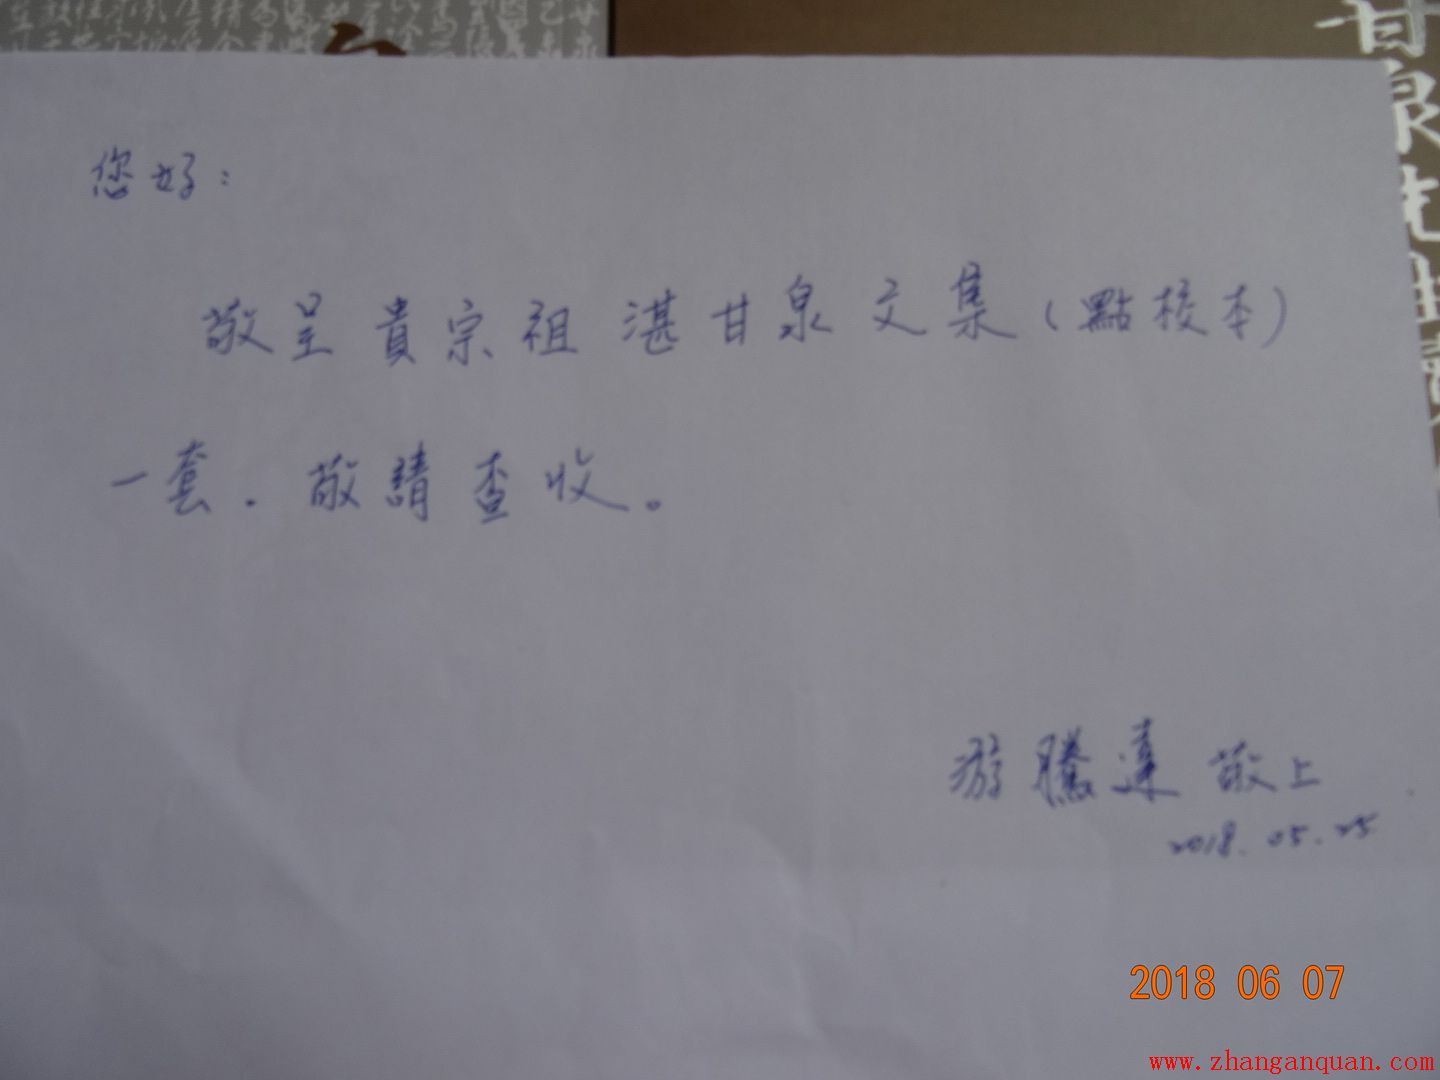 您好：
敬呈貴宗祖湛甘泉文集（點校本）
一套．敬請查收。
游騰達 敬上
2018.05.25
甘泉先生
2018 06 07
www.zhanganquan.com